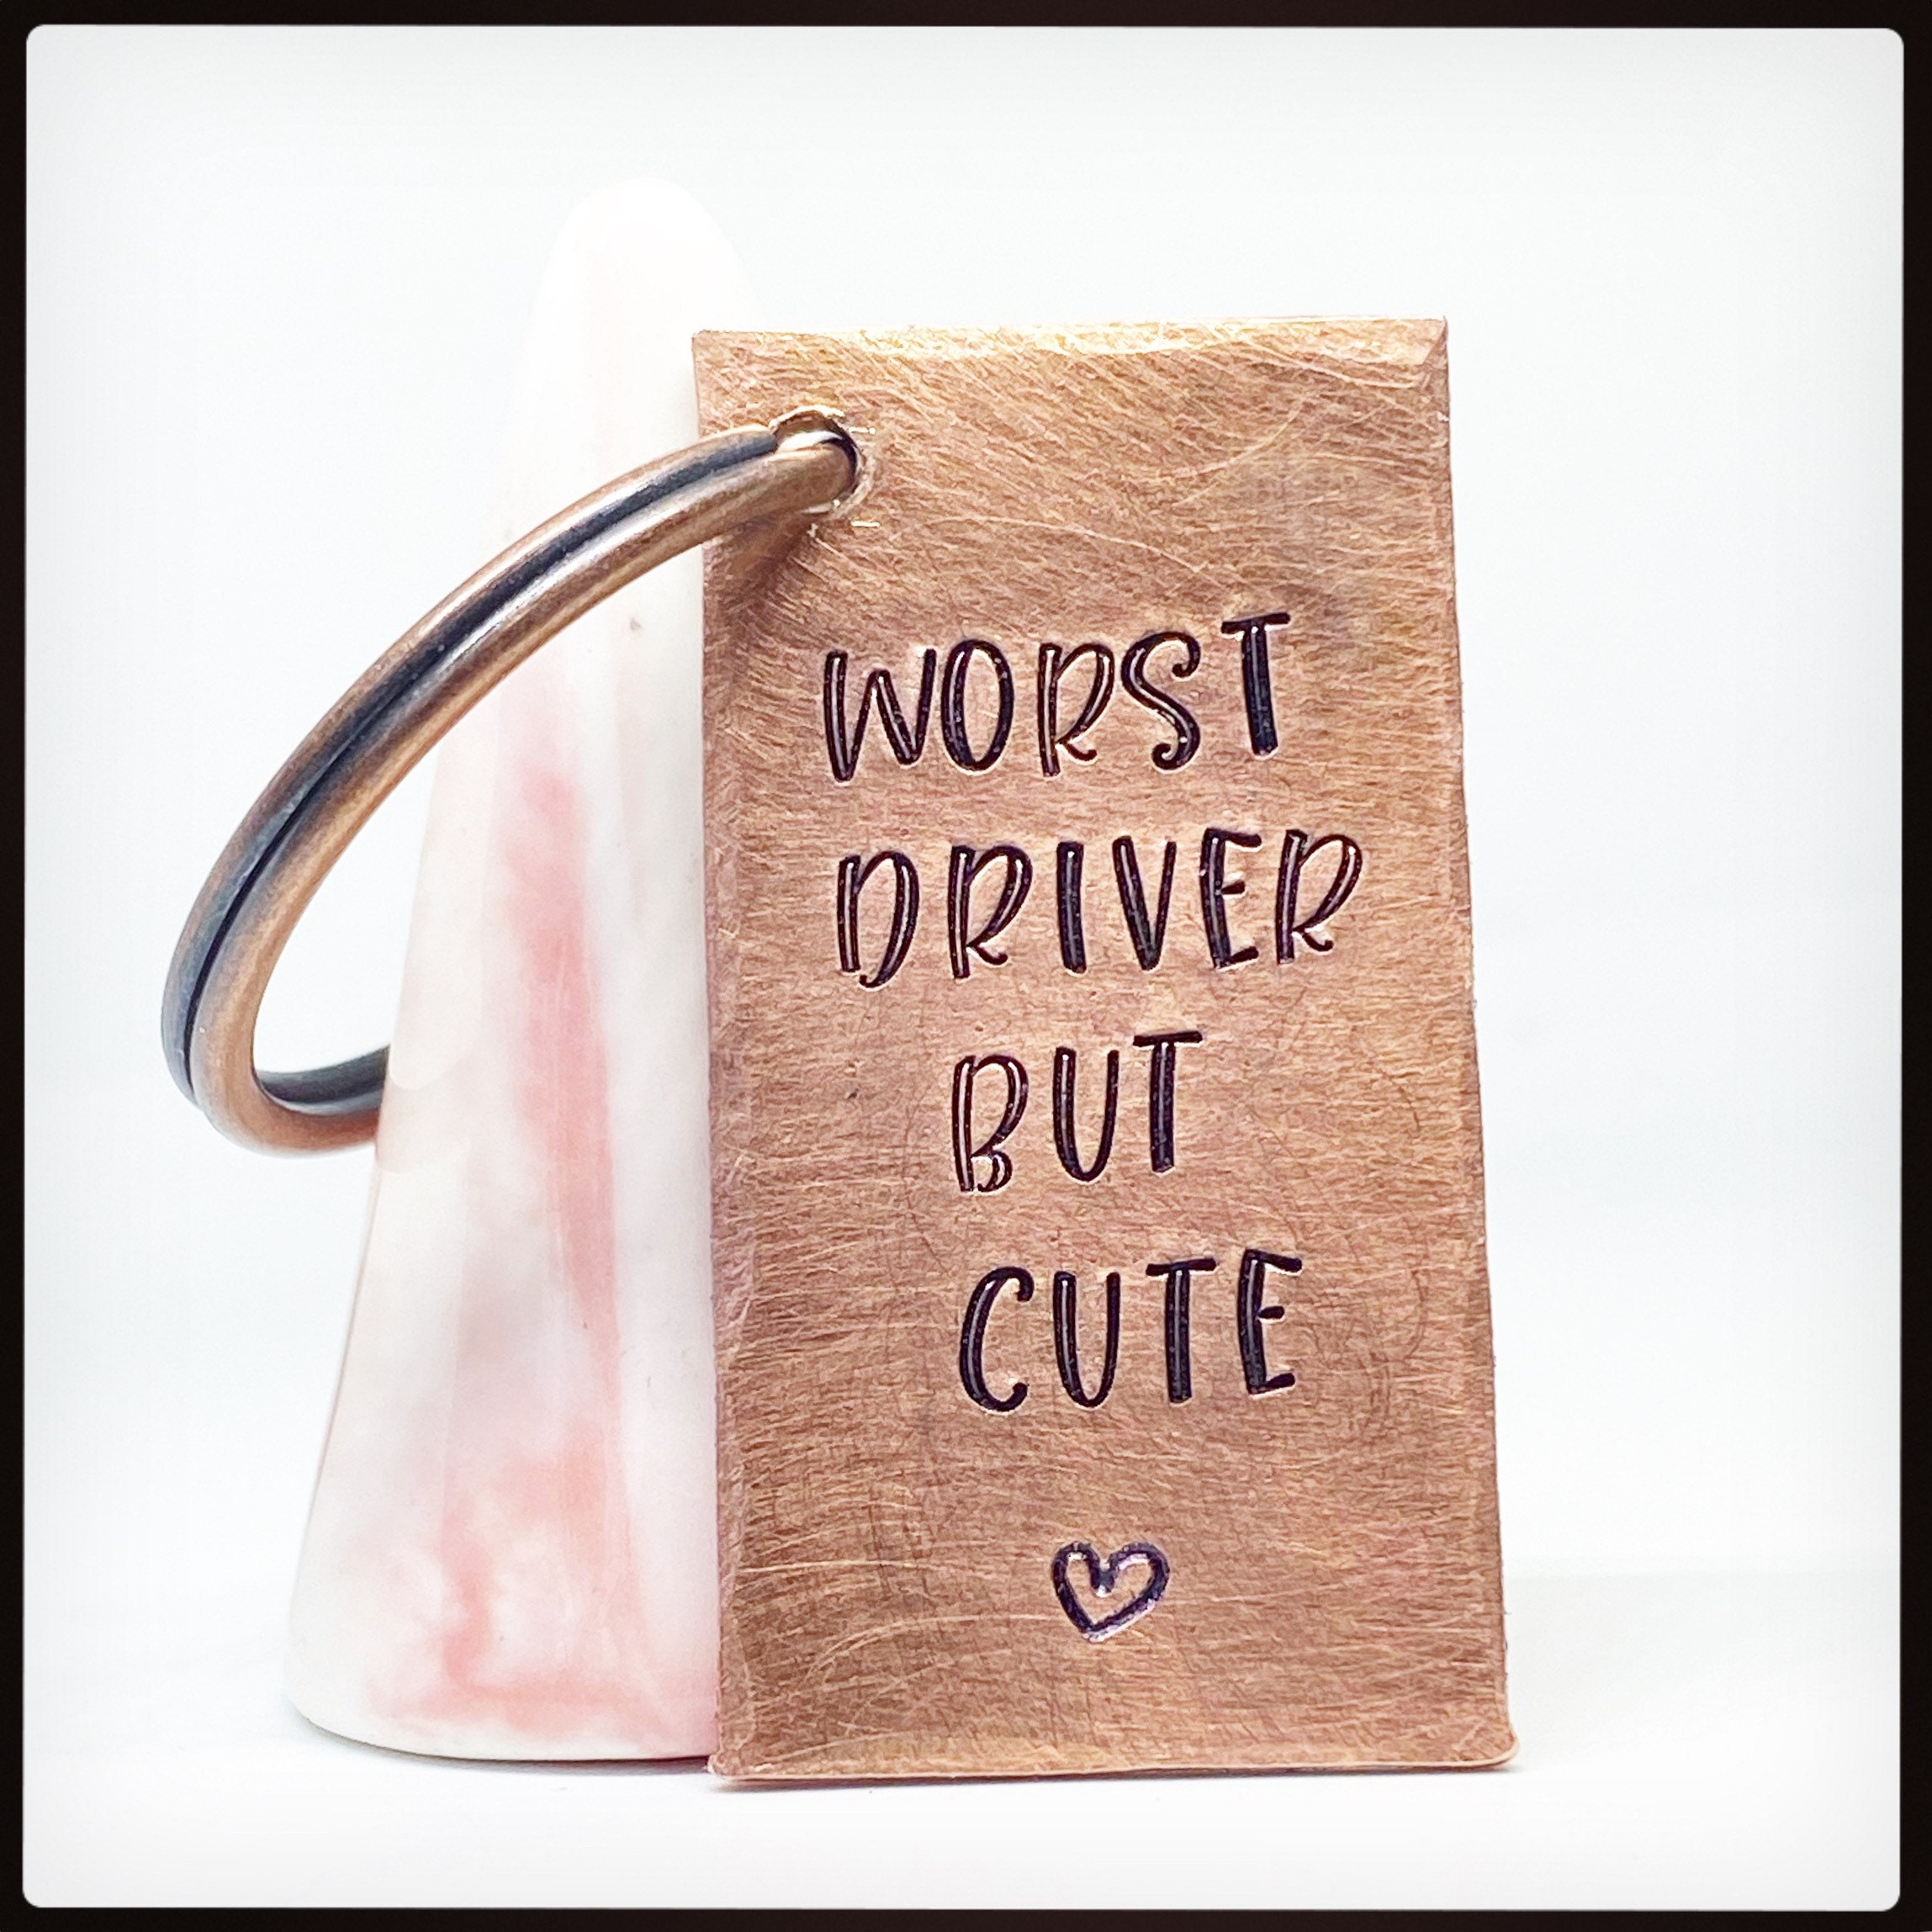 WORST
DRIVER
BUT
CUTE